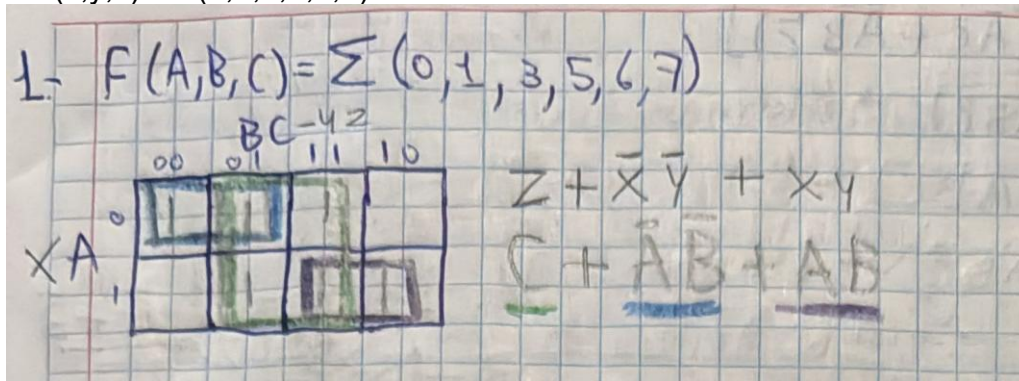 1.- F(A,B,C)=Σ(0,1,3,5,6,7)
BC-YZ
00 01 11 10
XA
0 1 1 1
1 1 1 1
Z + X̄ Ȳ + XY
C + Ā B̄ + AB